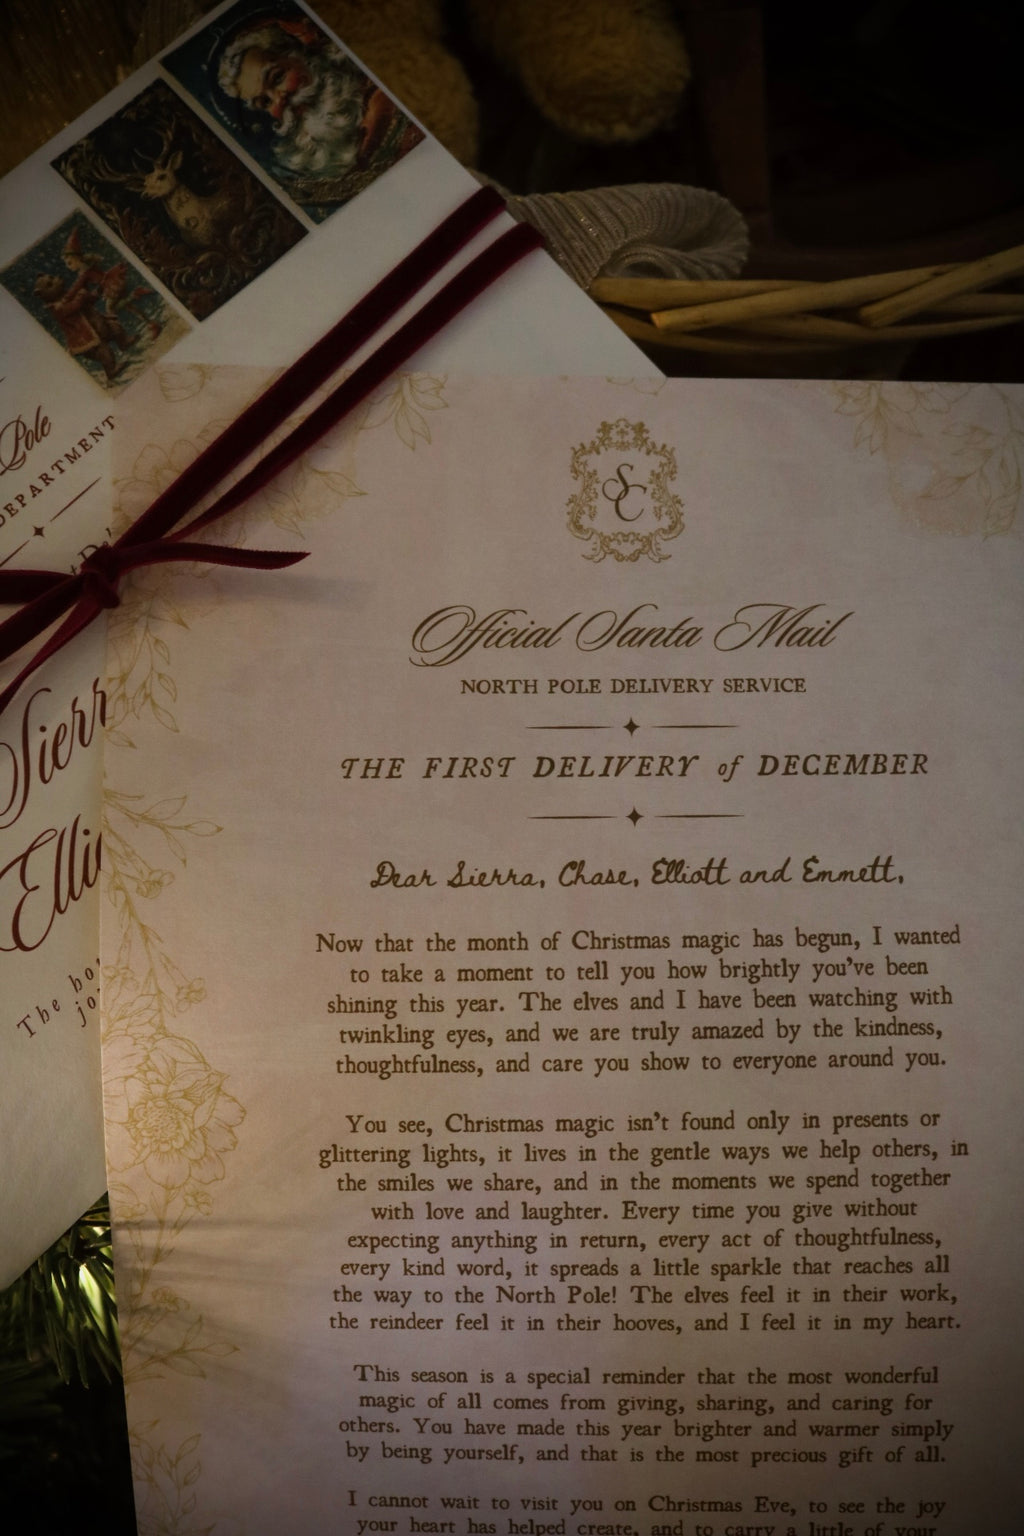 Pole
DEPARTMENT
Sierr
Elli
The
SC
Official Santa Mail
NORTH POLE DELIVERY SERVICE
THE FIRST DELIVERY of DECEMBER
Dear Sierra, Chase, Elliott and Emmett,
Now that the month of Christmas magic has begun, I wanted
to take a moment to tell you how brightly you've been
shining this year. The elves and I have been watching with
twinkling eyes, and we are truly amazed by the kindness,
thoughtfulness, and care you show to everyone around you.
You see, Christmas magic isn't found only in presents or
glittering lights, it lives in the gentle ways we help others, in
the smiles we share, and in the moments we spend together
with love and laughter. Every time you give without
expecting anything in return, every act of thoughtfulness,
every kind word, it spreads a little sparkle that reaches all
the way to the North Pole! The elves feel it in their work,
the reindeer feel it in their hooves, and I feel it in my heart.
This season is a special reminder that the most wonderful
magic of all comes from giving, sharing, and caring for
others. You have made this year brighter and warmer simply
by being yourself, and that is the most precious gift of all.
I cannot wait to visit you on Christmas Eve, to see the joy
your heart has helped create, and to carry a little of your